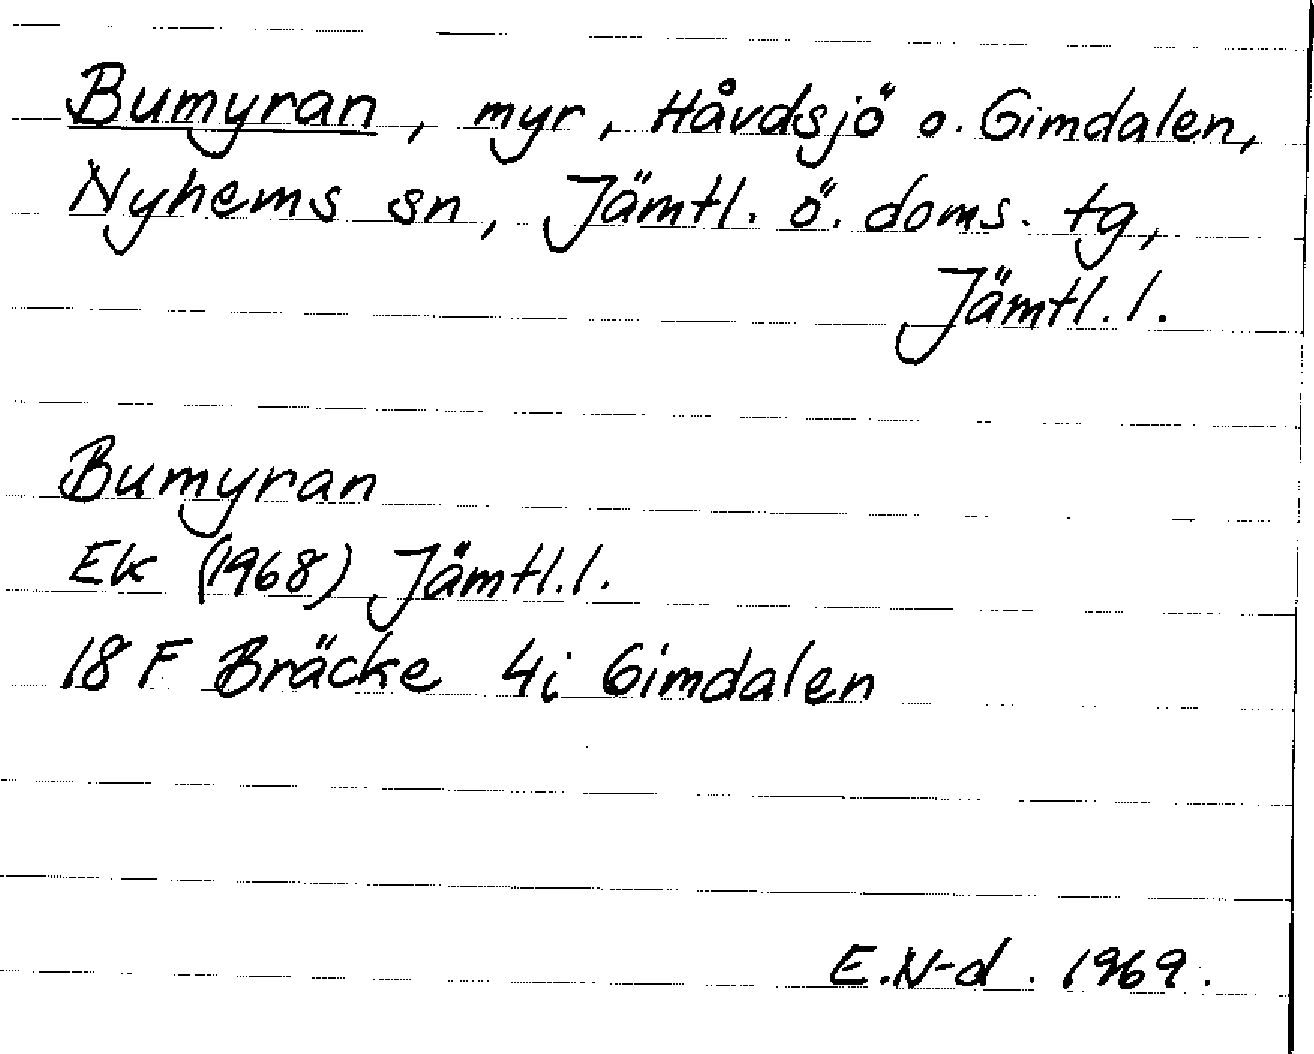 Bumyran, myr, Håvdsjö o. Gimdalen,
Nyhems sn, Jämtl. ö. doms. tg,
Jämtl. l.
Bumyran
Ek (1968) Jämtl. l.
18 F Bräcke 4i Gimdalen
E.N-d. 1969.